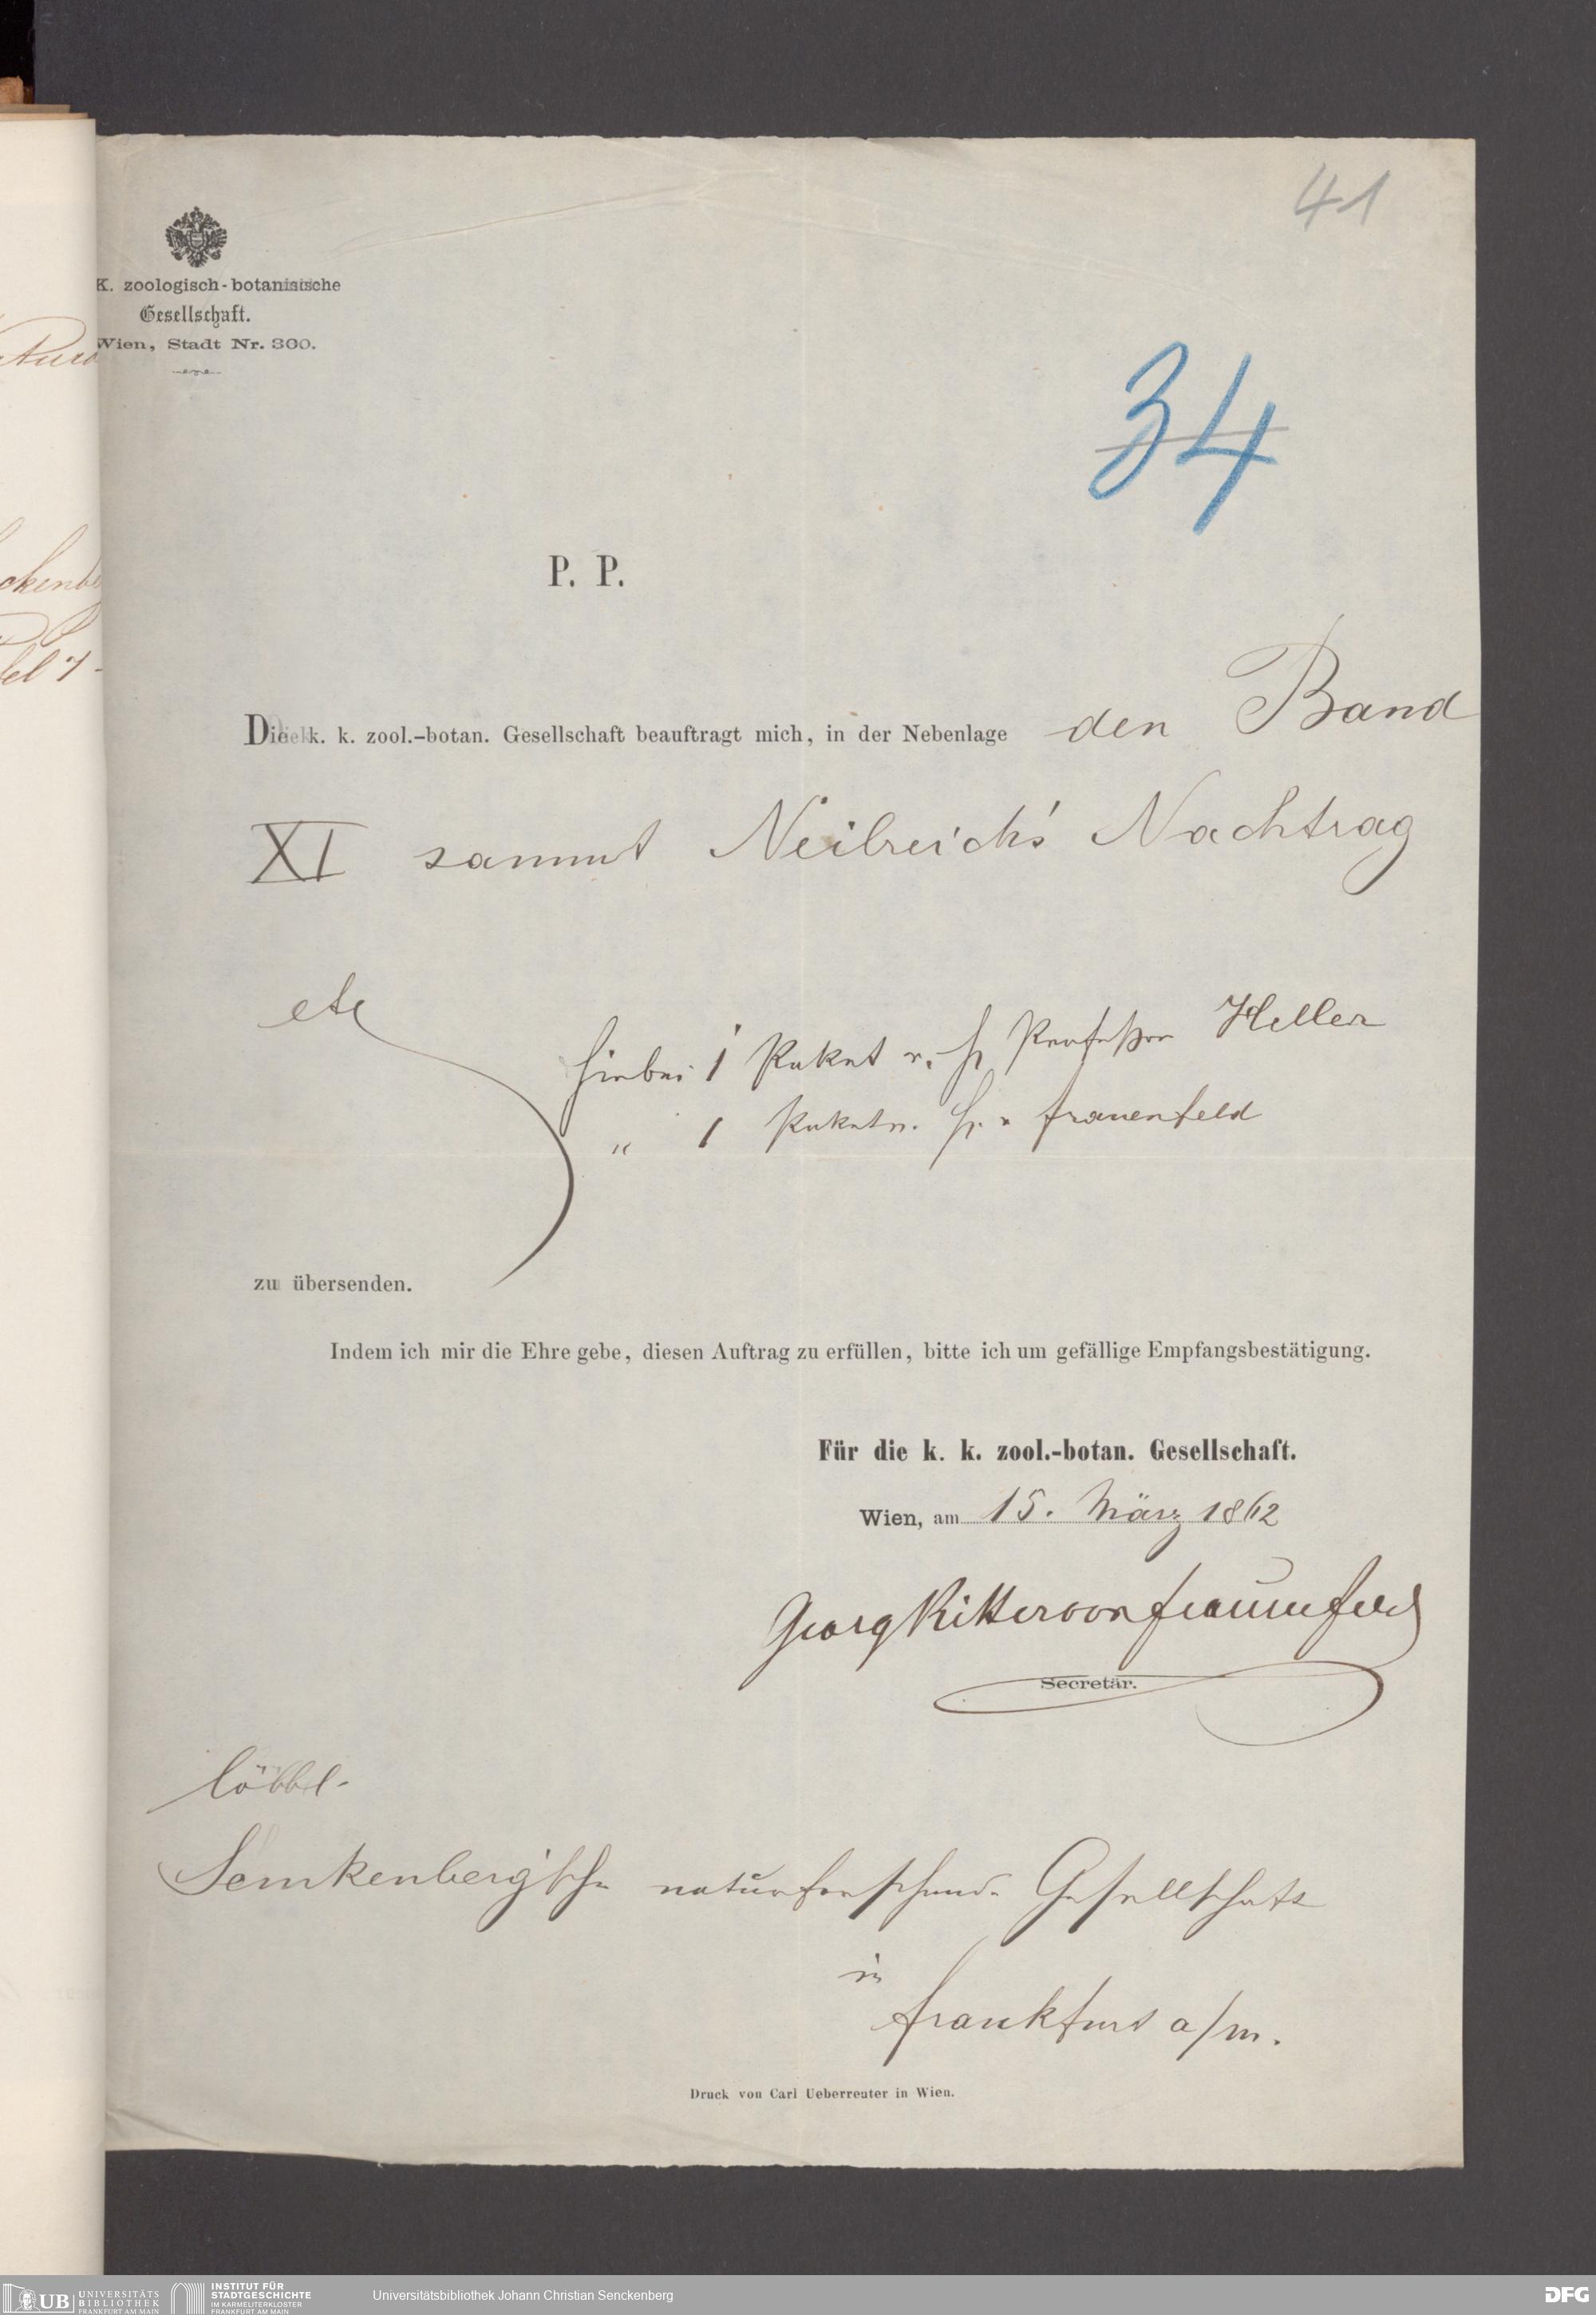 41
K. zoologisch-botanische
Gesellschaft.
Wien, Stadt Nr. 360.
34
P. P.
Die k. k. zool.-botan. Gesellschaft beauftragt mich, in der Nebenlage den Band
XI sammt Neilreich's Nachtrag
etc
hiebei 1 Paket v. H Professor Heller
" 1 Paket v. H. v Frauenfeld
zu übersenden.
Indem ich mir die Ehre gebe, diesen Auftrag zu erfüllen, bitte ich um gefällige Empfangsbestätigung.
Für die k. k. zool.-botan. Gesellschaft.
Wien, am 15. März 1862
Georg Ritter von Frauenfeld
Secretär.
löbbl.
Senkenberg'sche naturforschende Gesellschaft
in
Frankfurt a/m.
Druck von Carl Ueberreuter in Wien.
UB UNIVERSITÄTS
BIBLIOTHEK
FRANKFURT AM MAIN
INSTITUT FÜR
STADTGESCHICHTE
IM KARMELITERKLOSTER
FRANKFURT AM MAIN
Universitätsbibliothek Johann Christian Senckenberg
DFG